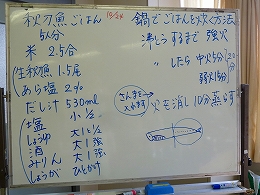 秋刀魚ごはん
5人分
米 2.5合
生秋刀魚 1.5尾
あら塩 2%
だし汁 530ml
塩 小1/2
しょうゆ 大1と1/2
酒 大1強
みりん 大1強
しょうが ひとかけ
鍋でごはんを炊く方法
沸とうするまで 強火
〃 したら 中火5分
弱火15分
20分
さんまを入れます
火を消し10分蒸らす